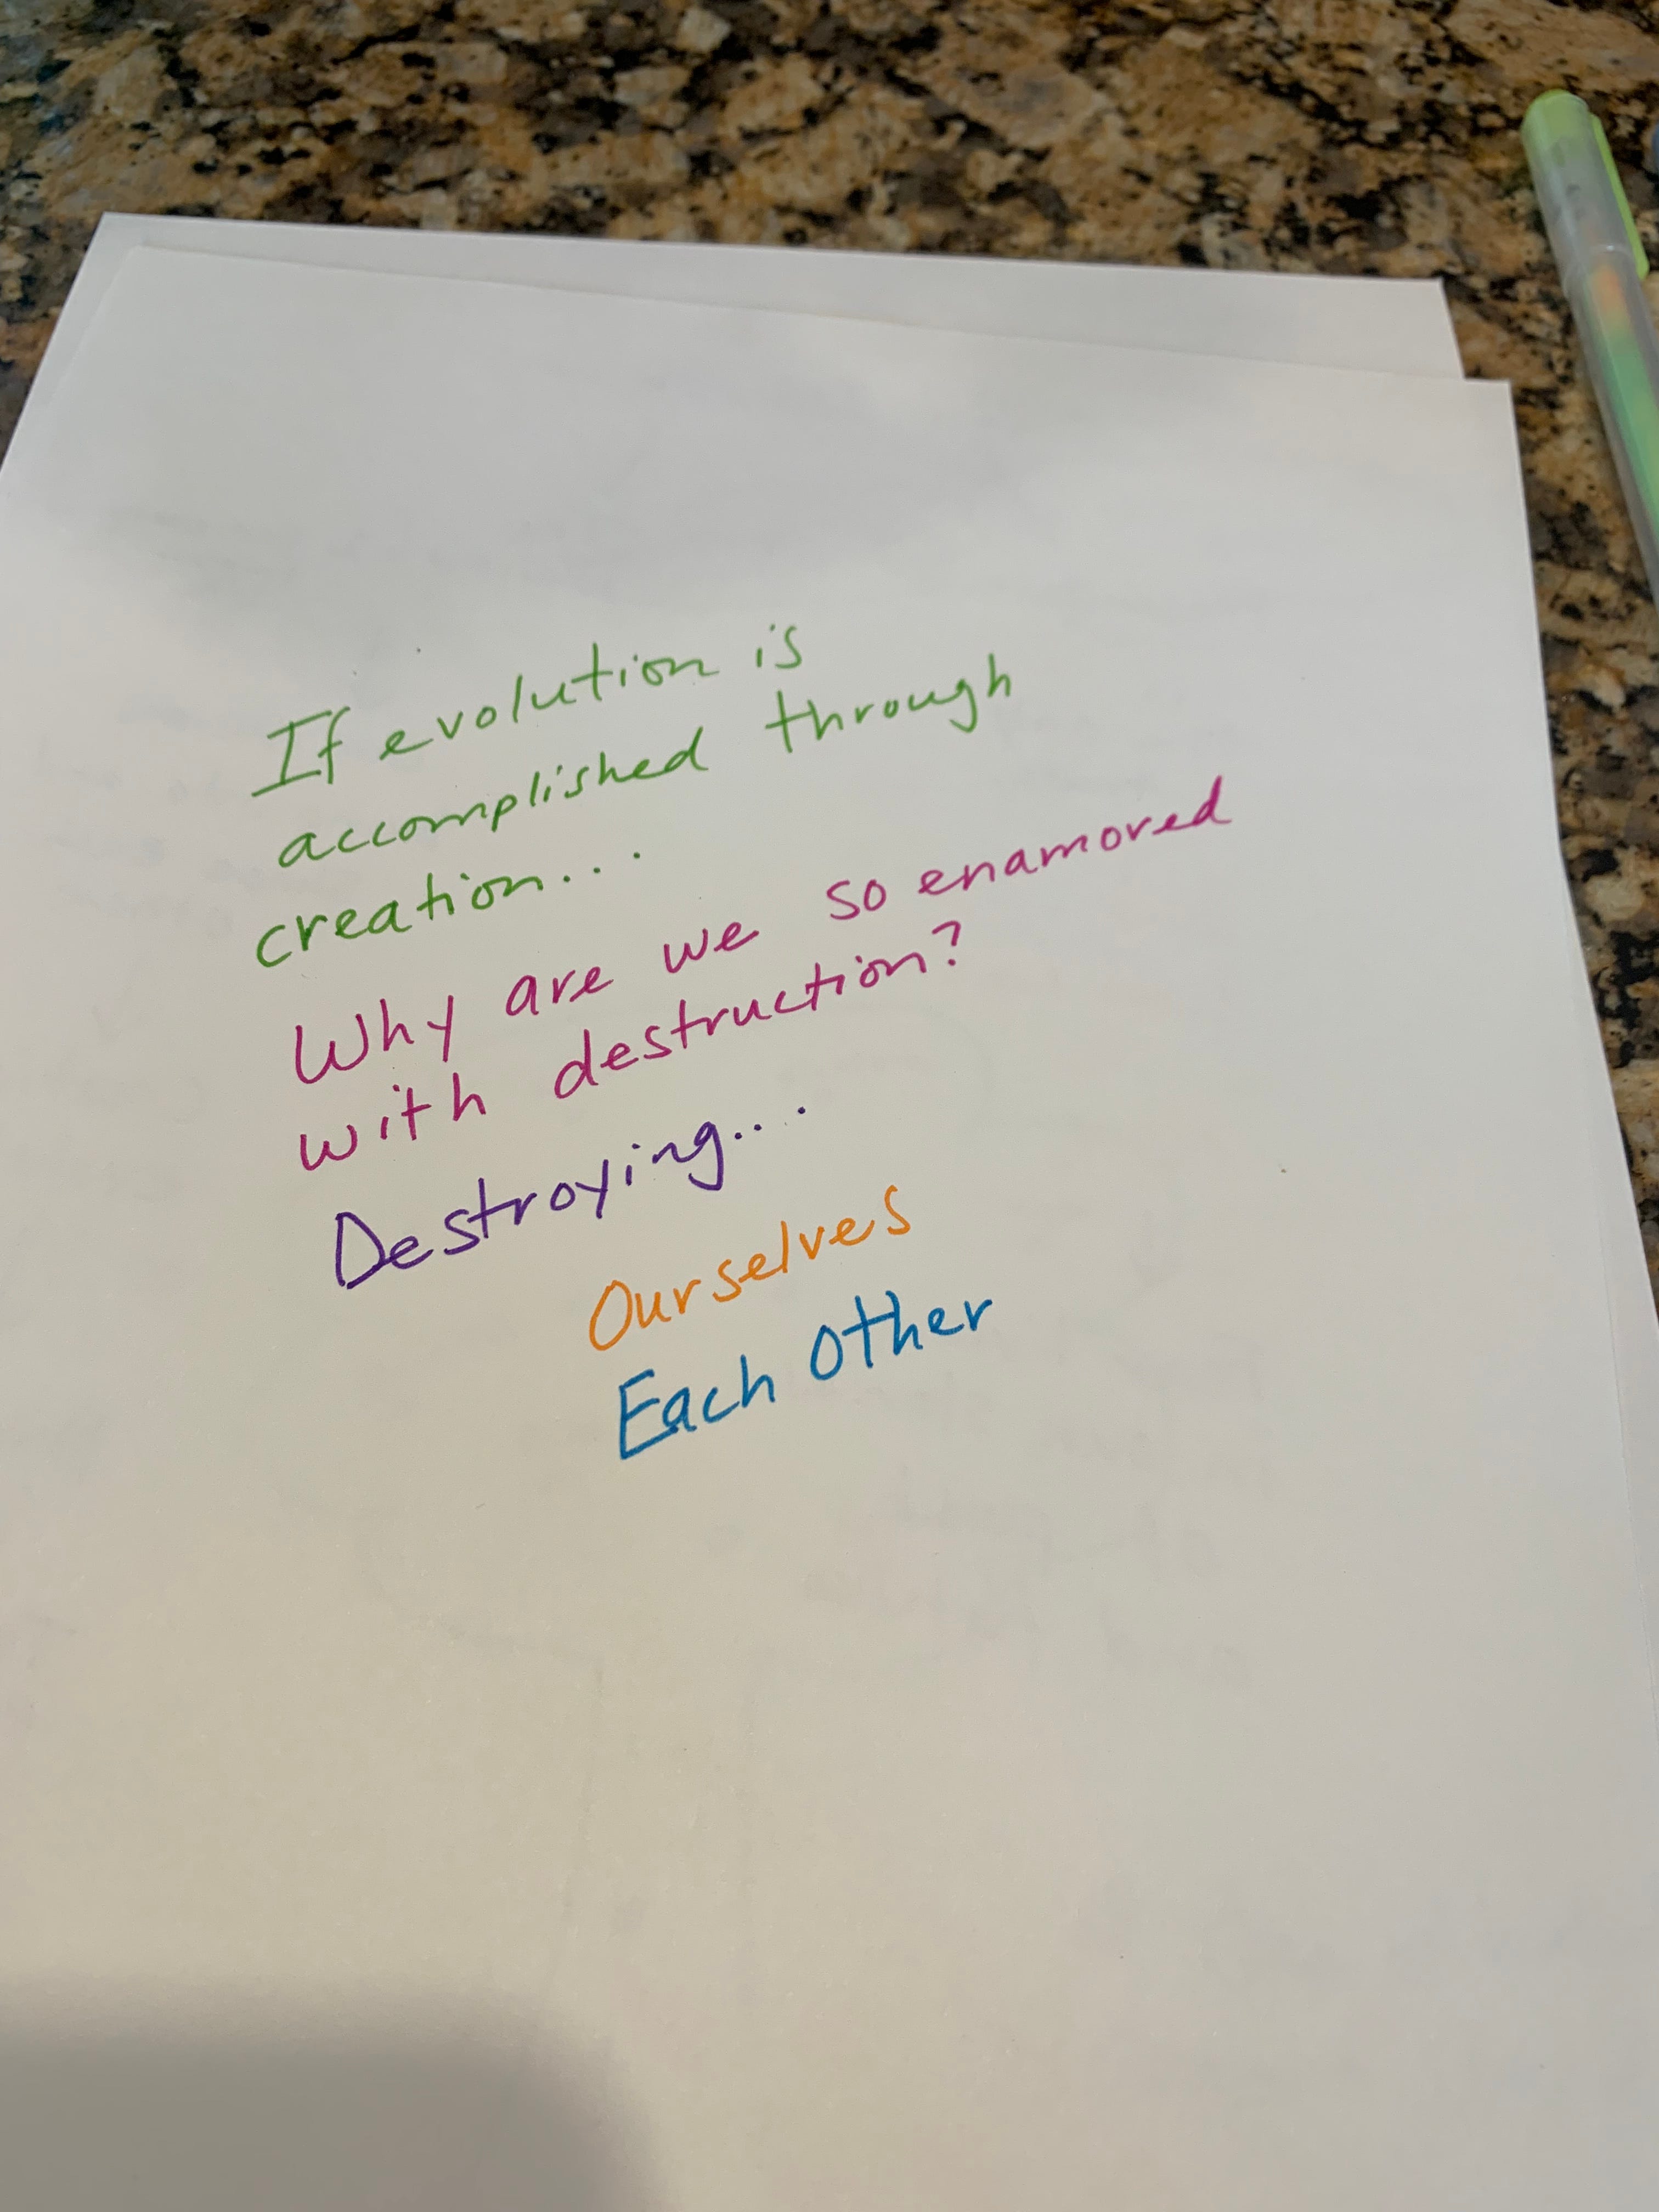 If evolution is
accomplished through
creation...
Why are we so enamored
with destruction?
Destroying....
Ourselves
Each Other